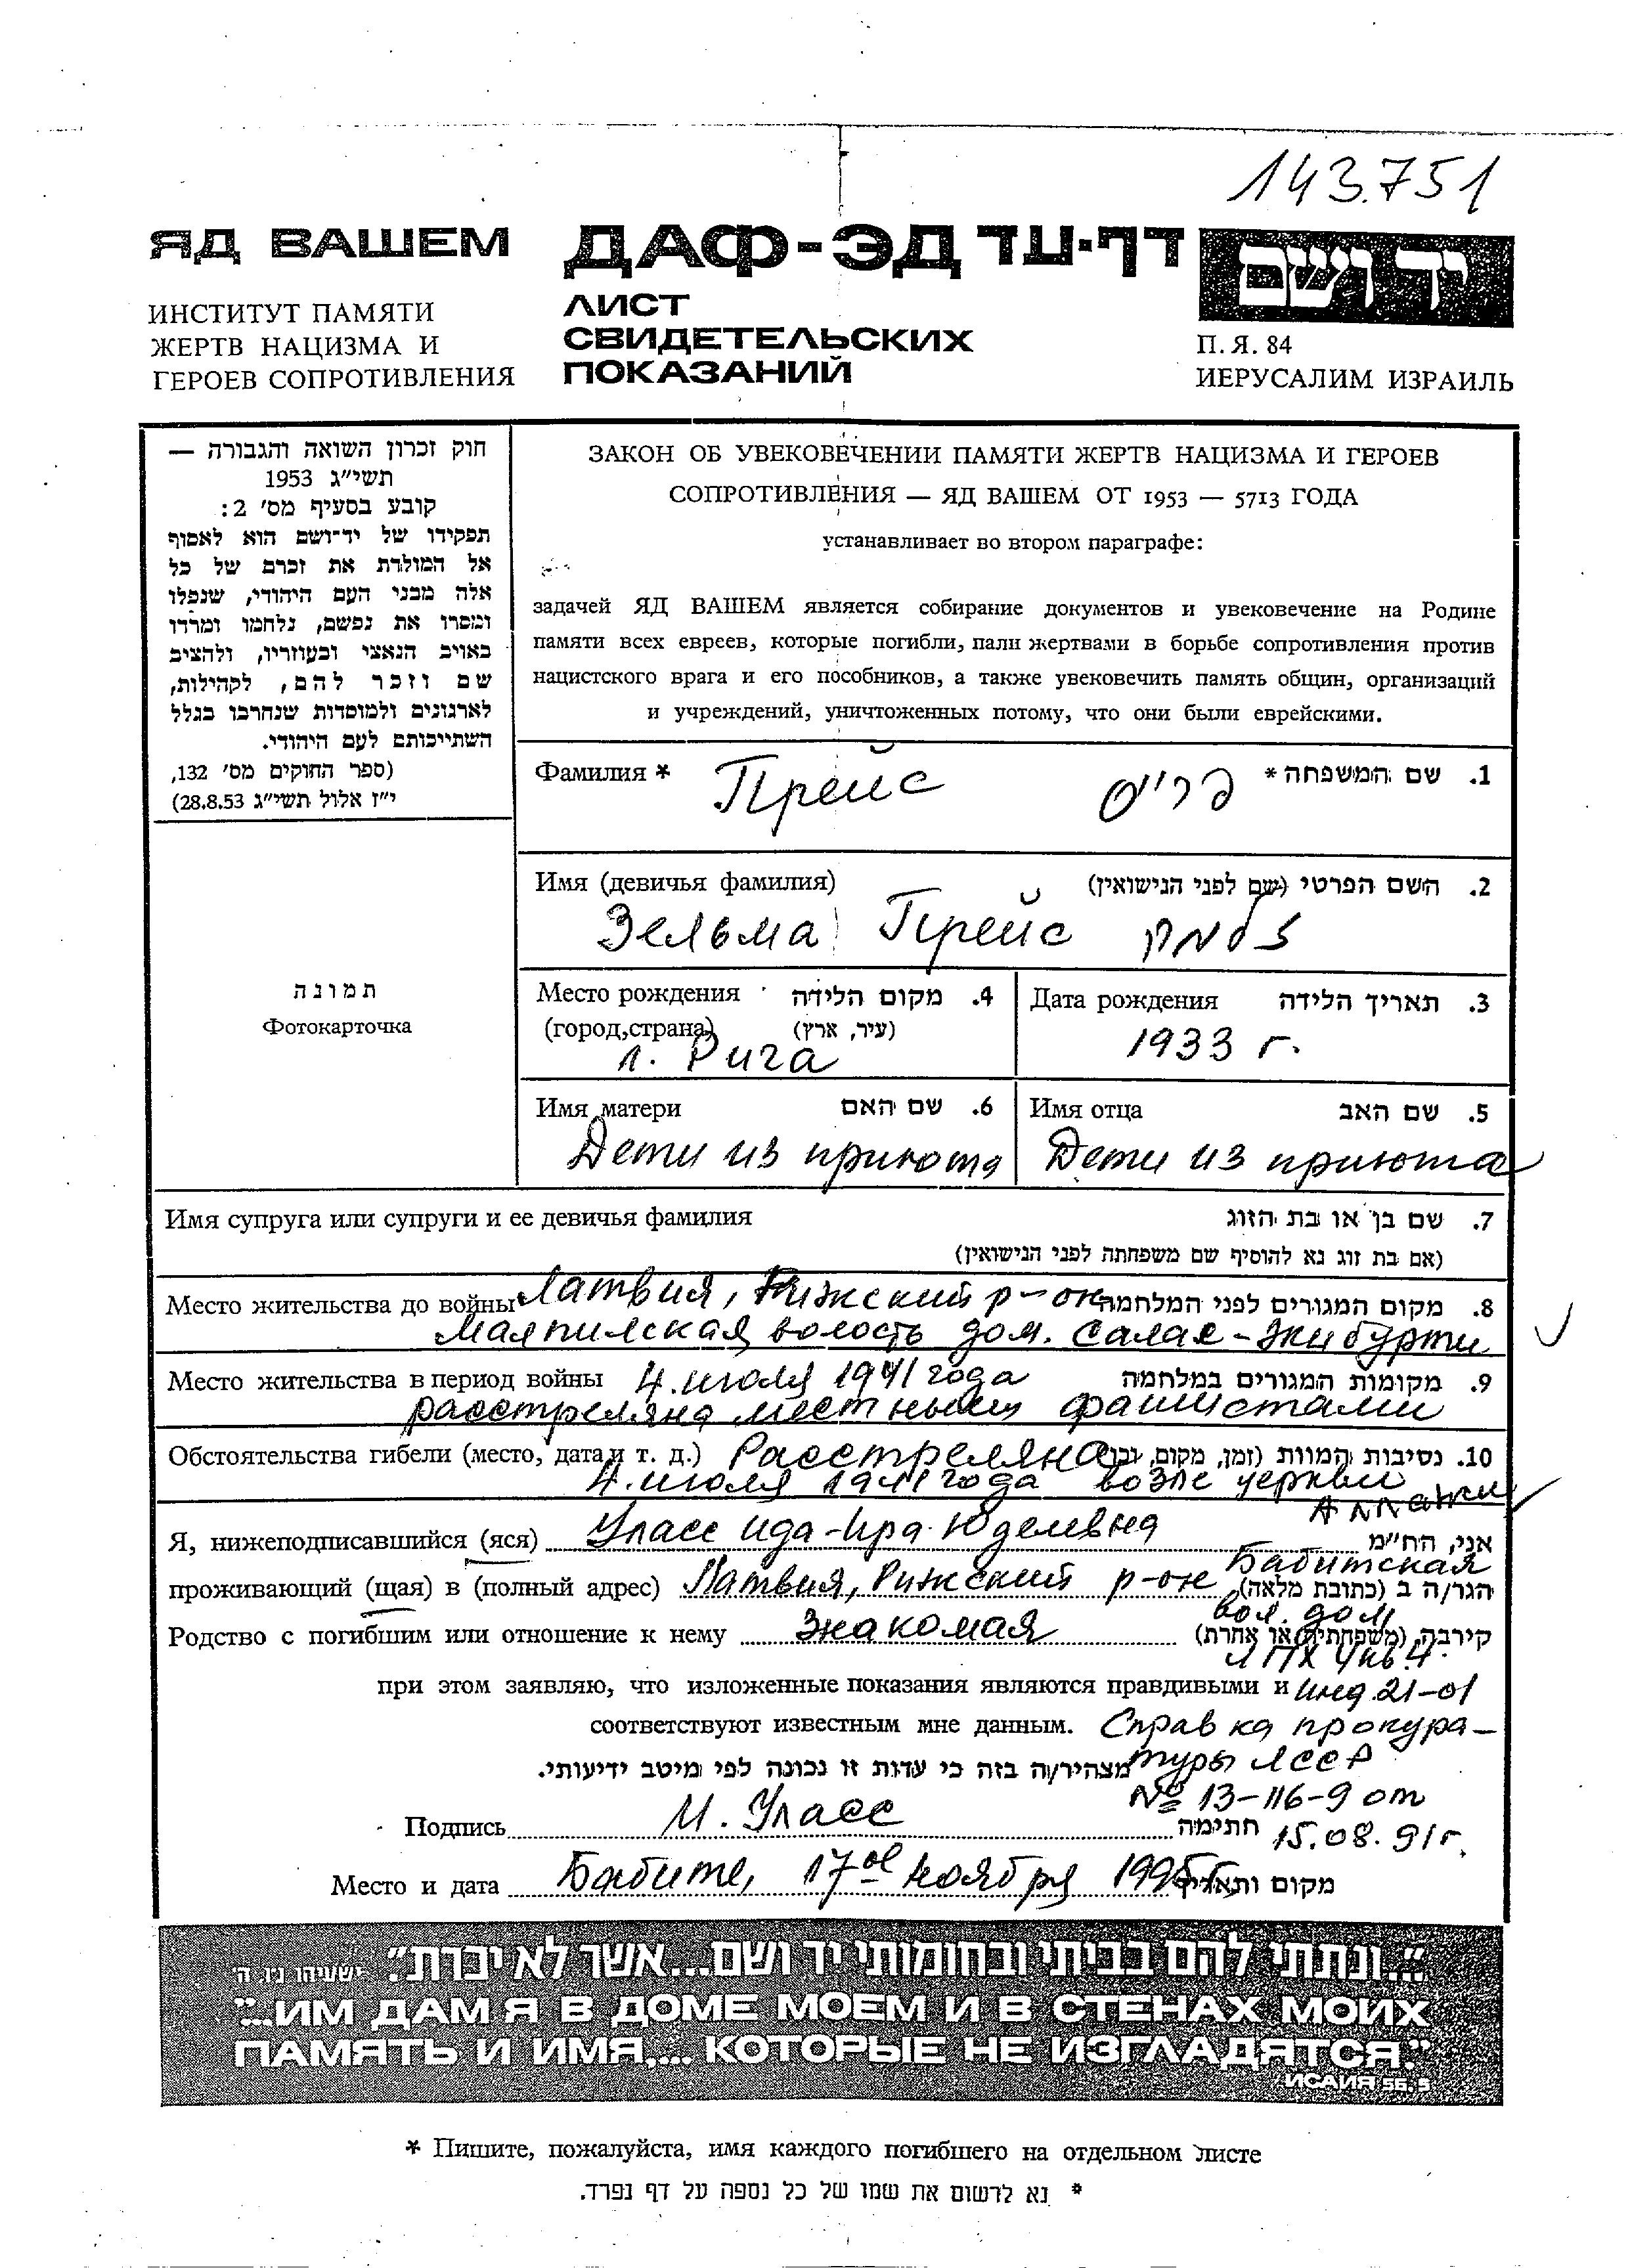 143.751
ЯД ВАШЕМ
ДАФ-ЭД דף-עד
יד ושם
ИНСТИТУТ ПАМЯТИ
ЖЕРТВ НАЦИЗМА И
ГЕРОЕВ СОПРОТИВЛЕНИЯ
ЛИСТ
СВИДЕТЕЛЬСКИХ
ПОКАЗАНИЙ
П. Я. 84
ИЕРУСАЛИМ ИЗРАИЛЬ
חוק זכרון השואה והגבורה —
תשי״ג 1953
קובע בסעיף מס׳ 2:
תפקידו של יד־ושם הוא לאסוף
אל המולדת את זכרם של כל
אלה מבני העם היהודי, שנפלו
ומסרו את נפשם, נלחמו ומרדו
באויב הנאצי ובעוזריו, ולהציב
שם וזכר להם, לקהילות,
לארגונים ולמוסדות שנחרבו בגלל
השתייכותם לעם היהודי.
(ספר החוקים מס׳ 132,
י״ז אלול תשי״ג 28.8.53)
ЗАКОН ОБ УВЕКОВЕЧЕНИИ ПАМЯТИ ЖЕРТВ НАЦИЗМА И ГЕРОЕВ
СОПРОТИВЛЕНИЯ — ЯД ВАШЕМ ОТ 1953 — 5713 ГОДА
устанавливает во втором параграфе:
задачей ЯД ВАШЕМ является собирание документов и увековечение на Родине
памяти всех евреев, которые погибли, пали жертвами в борьбе сопротивления против
нацистского врага и его пособников, а также увековечить память общин, организаций
и учреждений, уничтоженных потому, что они были еврейскими.
Фамилия * Прейс פרייס 1. שם המשפחה*
Имя (девичья фамилия) 2. השם הפרטי (שם לפני הנישואין)
Зельма Прейс זלמה
Место рождения 4. מקום הלידה
(город,страна) (עיר, ארץ)
г. Рига
Дата рождения 3. תאריך הלידה
1933 г.
Имя матери 6. שם האם
Дети из приюта
Имя отца 5. שם האב
Дети из приюта
תמונה
Фотокарточка
Имя супруга или супруги и ее девичья фамилия 7. שם בן או בת הזוג
(אם בת זוג נא להוסיף שם משפחתה לפני הנישואין)
Место жительства до войны Латвия, Рижский р-он 8. מקום המגורים לפני המלחמה
Малпилская волость дом. Салас-Экибурти
Место жительства в период войны 4. июля 1941 года 9. מקומות המגורים במלחמה
расстреляна местными фашистами
Обстоятельства гибели (место, дата и т. д.) Расстреляна 10. נסיבות המוות (זמן, מקום,
4. июля 1941 года возле церкви
Аллажи
Я, нижеподписавшийся (яся) Уласс Ида-Ира Юделевна אני, הח״מ
проживающий (щая) в (полный адрес) Латвия, Рижский р-он Бабитская הגר/ה ב (כתובת מלאה)
вол. дом
Родство с погибшим или отношение к нему знакомая קירבה (משפחתית או אחרת)
ЛПХ 4 кв.4.
при этом заявляю, что изложенные показания являются правдивыми и инд.21-01
соответствуют известным мне данным. Справка прокура-
туры ЛССР
מצהיר/ה בזה כי עדות זו נכונה לפי מיטב ידיעותי.
№ 13-116-9 от
Подпись И. Уласс חתימה 15.08.91г.
Место и дата Бабите, 17ое ноября 1995г. מקום ותאריך
״...ונתתי להם בביתי ובחומותי יד ושם...אשר לא יכרת״. ישעיהו נ״ו, ה׳
"...ИМ ДАМ Я В ДОМЕ МОЕМ И В СТЕНАХ МОИХ
ПАМЯТЬ И ИМЯ,... КОТОРЫЕ НЕ ИЗГЛАДЯТСЯ."
ИСАИЯ 56.5
* Пишите, пожалуйста, имя каждого погибшего на отдельном листе
* נא לרשום את שמו של כל נספה על דף נפרד.